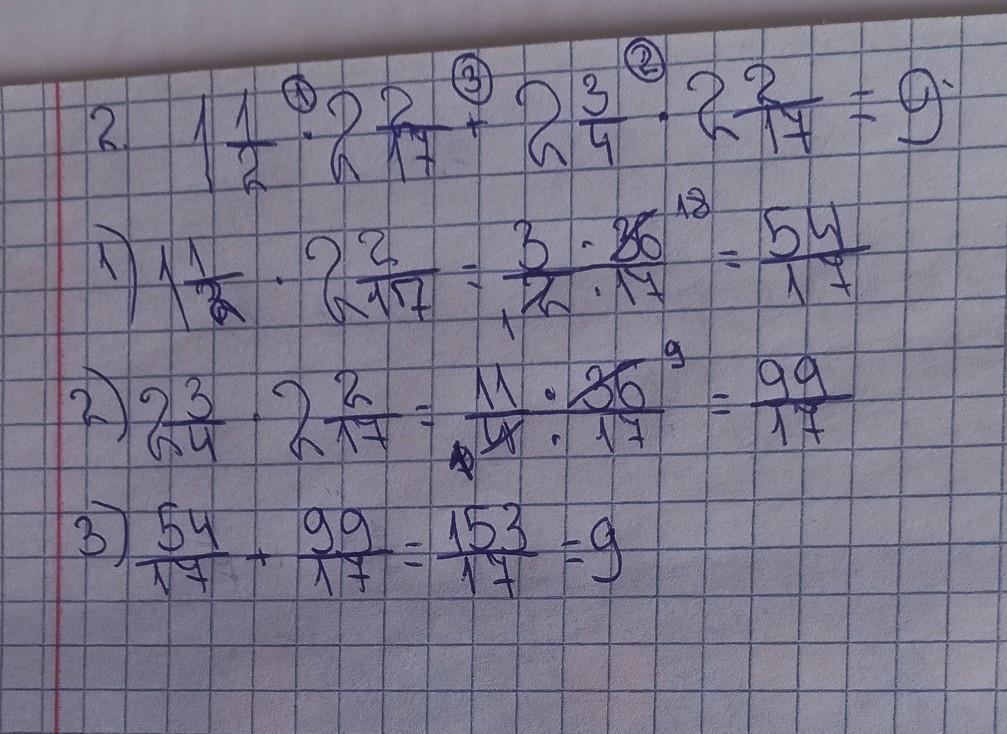 ① ③ ②
2. 1 1/2 · 2 2/17 + 2 3/4 · 2 2/17 = 9
1) 1 1/2 · 2 2/17 = 3 · 36 18 / 2 1 · 17 = 54/17
2) 2 3/4 · 2 2/17 = 11 · 36 9 / 4 · 17 = 99/17
3) 54/17 + 99/17 = 153/17 = 9